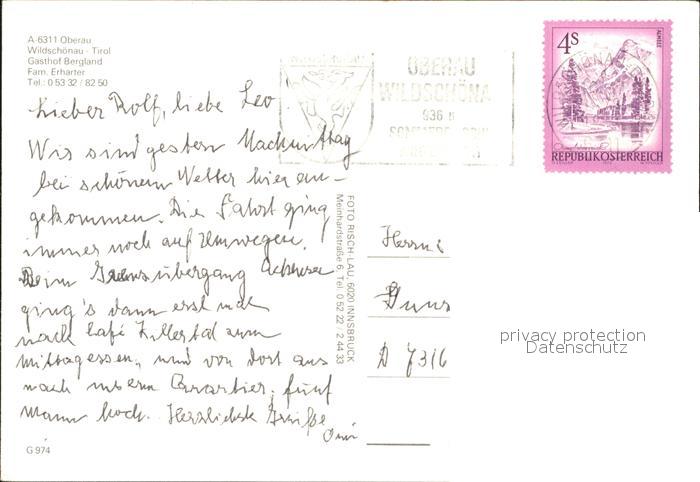 A-6311 Oberau
Wildschönau - Tirol
Gasthof Bergland
Fam. Erharter
Tel.: 0 53 32 / 82 50
Lieber Rolf, liebe Leo
Wir sind gestern Nachmittag
bei schönem Wetter hier an-
gekommen. Die Fahrt ging
immer noch auf Umwegen.
Beim Grenzübergang Achensee
ging's dann erst mal
nach Café Zillertal zum
Mittagessen, und von dort aus
nach unserm Quartier, fünf
Mann hoch. Herzlichste Grüße
G 974
FOTO RISCH-LAU, 6020 INNSBRUCK
Meinhardstraße 6, Tel. 0 52 22 / 2 44 33
OBERAU
WILDSCHÖNA
936 m
4 S
ALMSEE
REPUBLIK ÖSTERREICH
D 7316
privacy protection
Datenschutz